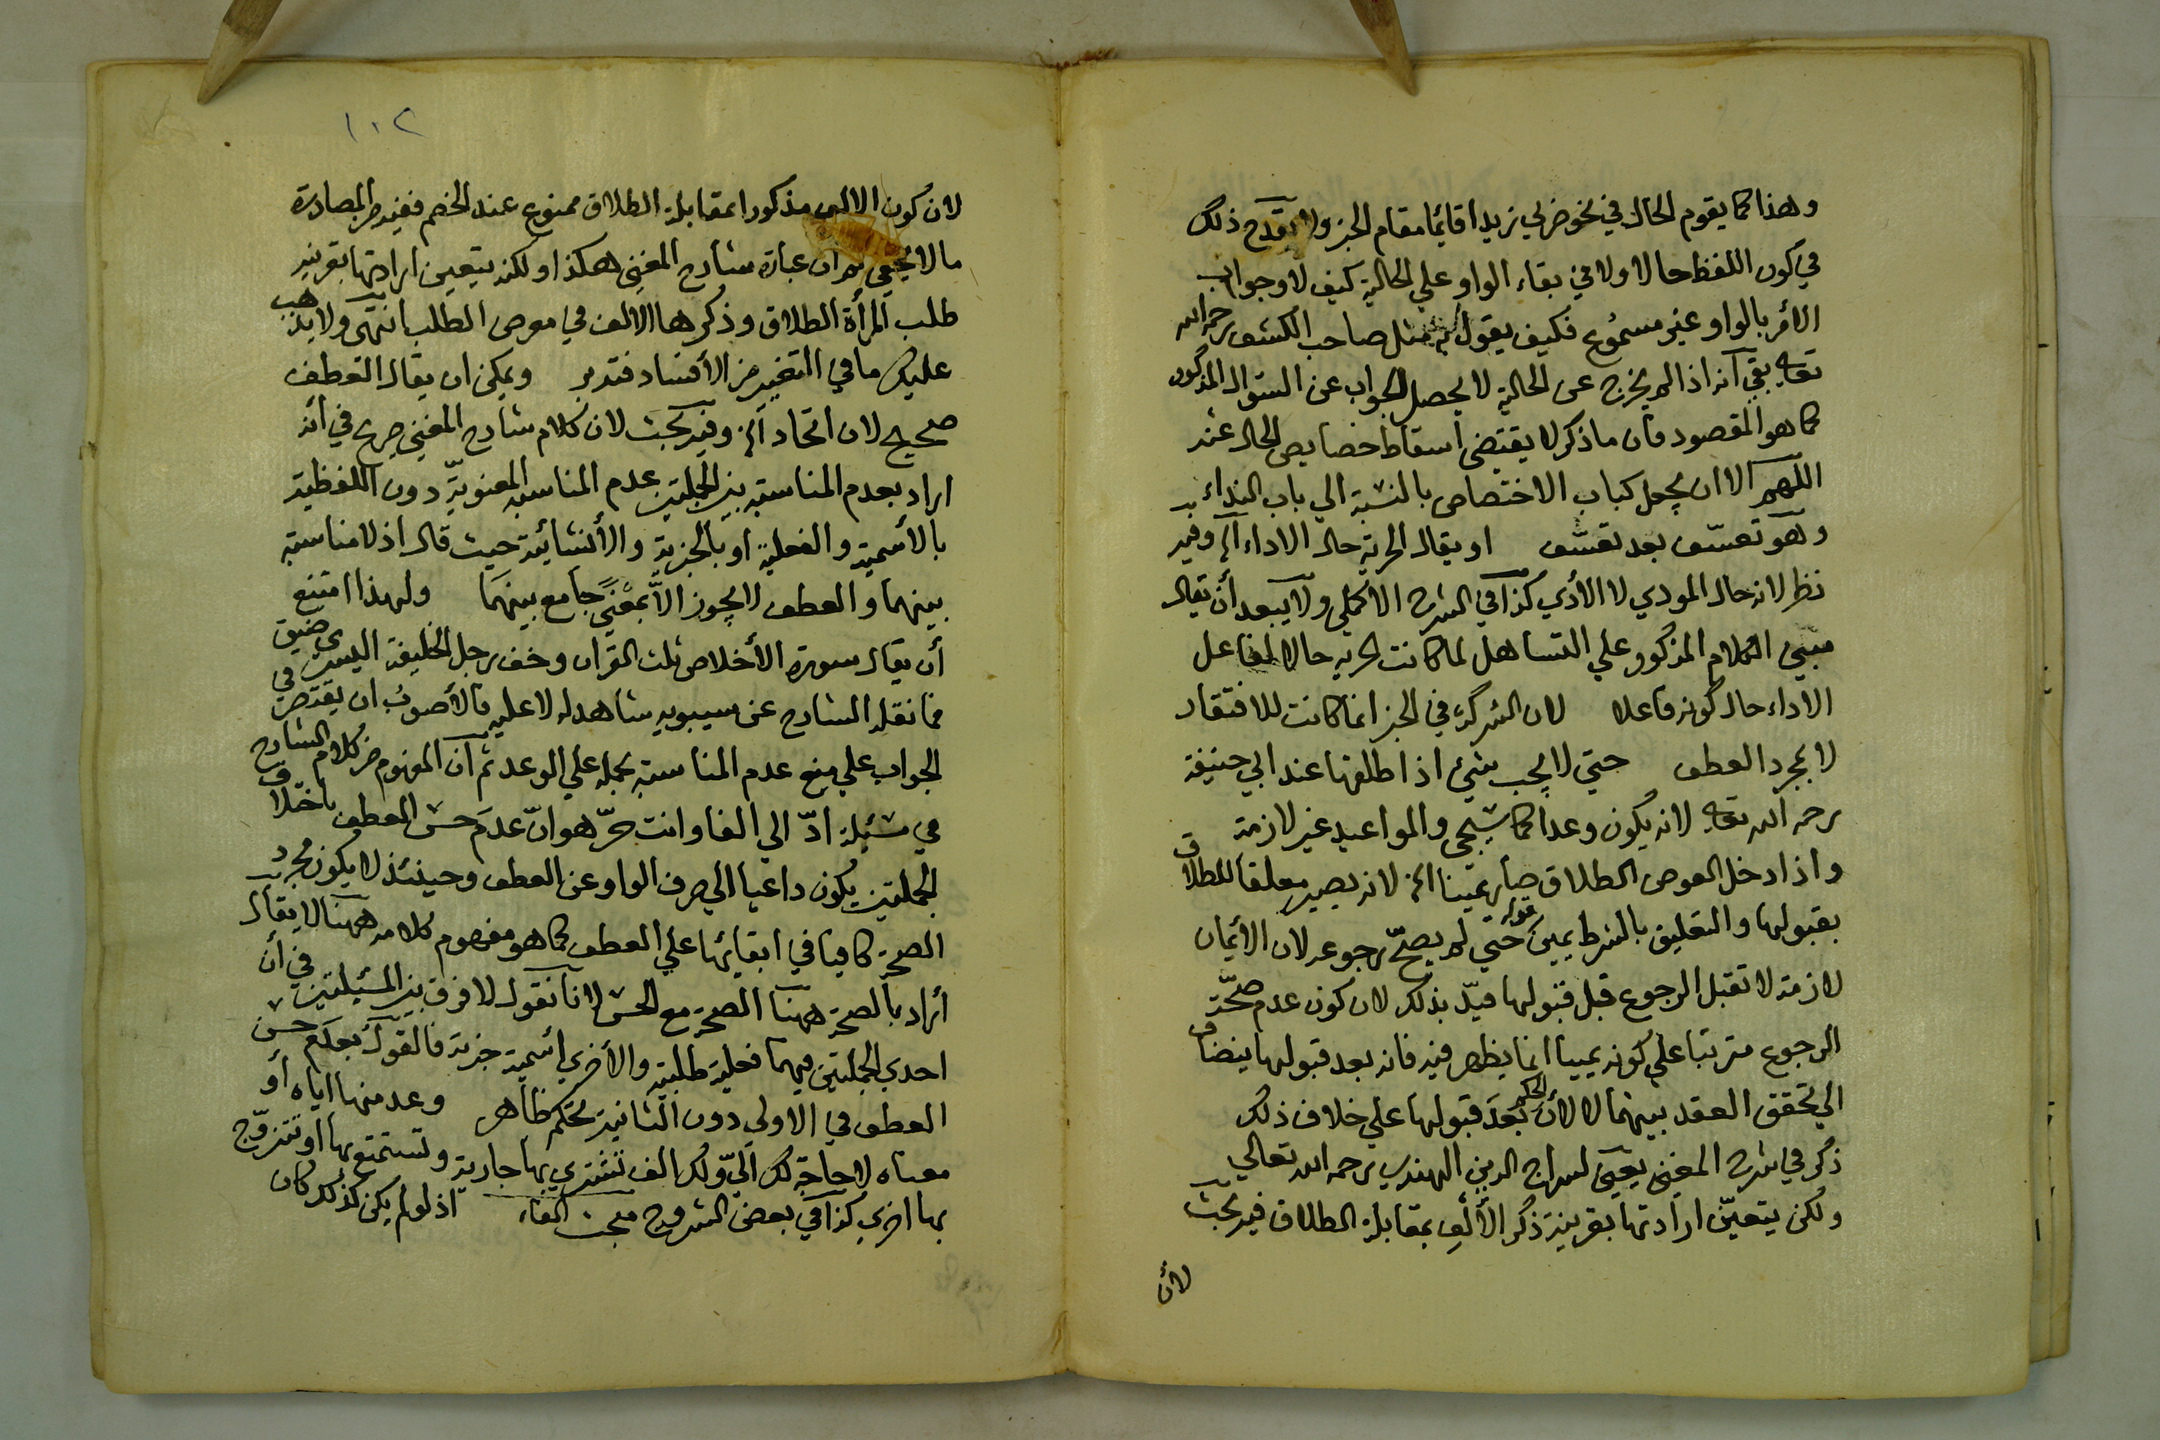 وهذا كما يقوم الحال في نحو ضربي زيدا قائما مقام الخبر ولا يقدح ذلك
في كون اللفظ حالا ولا في بقاء الواو علي الحالية كيف لا وجواب
الأمر بالواو غير مسموع فكيف يقول به مثل صاحب الكشف رحمه الله
تعالي بقي آنه اذا لم يخرج عن الحالية لا يحصل الجواب عن السؤال المذكور
كما هو المقصود فان ما ذكر لا يقتضي اسقاط خصايص الحال عند
اللهم الا ان يجعل كباب الاختصاص بالنسبة الي باب النداء
وهو تعسّف بعد تعسّف او يقال الحرية حال الاداء آلخ وفيه
نظر لانه حال المودي لا الأدي كذا في الشرح الاكملي ولا يبعد أن يقال
مبني الكلام المذكور علي التساهل لما كانت الحرية حالا لفاعل
الاداء حال كونه فاعلا لان الشركة في الخبر انما كانت للافتقار
لا بمجرد العطف حتي لا يجب شئ اذا طلقها عند ابي حنيفة
رحمه الله تعالي لانه يكون وعدا كما سيجي والمواعيد غير لازمة
واذا دخل العوض الطلاق صار يمينا الخ لانه يصير معلقا للطلاق
بقبولها والتعليق بالشرط يمين قوله حتي لم يصحّ رجوعه لان الأيمان
لازمة لا تقبل الرجوع قبل قبولها قيّد بذلك لان كون عدم صحّة
الرجوع مترتبا علي كونه يمينا انما يظهر فيه فانه بعد قبولها ينضاف
الي تحقق العقد بينهما لا لأن الحكم بعد قبولها علي خلاف ذلك
ذكر في شرح المغني يعني لسراج الدين الهندي رحمه الله تعالي
ولكن يتعيّن ارادتها بقرينة ذكر الألف بمقابلة الطلاق فيه بحث
لأن
١٠٢
لان كون الالف مذكورا بمقابلة الطلاق ممنوع عند الخصم ففيه من المصادرة
ما لا يخفي ثم ان عبارة شارح المغني هكذا ولكنه يتعين ارادتها بقرينة
طلب المرأة الطلاق وذكرها الالف في معرض الطلب انتهى ولا يذهب
عليك ما في التغيير من الأفساد فتدبر ويمكن ان يقال العطف
صحيح لان اتحاد آلخ وفيه بحث لان كلام شارح المغني صريح في أنه
اراد بعدم المناسبة بين الجملتين عدم المناسبة المعنويّة دون اللفظية
بالأسمية والفعلية او بالخبرية والأنشائية حيث قال اذ لا مناسبة
بينهما والعطف لا يجوز الاّ بمعنيً جامع بينهما ولهذا امتنع
أن يقال سورة الأخلاص ثلث القرآن وخف رجل الخليفة اليسري ضيق
فما نقله الشارح عن سيبويه شاهد له لا عليه فالأصوب ان يقتصر في
الجواب علي منع عدم المناسبة بحمله علي الوعد ثم آن المفهوم من كلام الشارح
في مسئلة ادّ الي الفا وانت حرّ هو انّ عدم حسن العطف باختلاف
الجملتين يكون داعيا الي صرف الواو عن العطف وحينئذ لا يكون مجرد
الصحة كافيا في ابقائها علي العطف كما هو مفهوم كلامه ههنا لا يقال
أراد بالصحة ههنا الصحة مع الحسن لانا نقول لا فرق بين المسئلتين في أن
احدي الجملتين فيهما فعلية طلبية والأخري اسمية خبرية فالقول بعدم حسن
العطف في الاولي دون الثانية تحكم ظاهر وعد منها اياه أو
معناه لا حاجة لك اليّ ولك الف تشتري بها جارية وتستمتع بها او تتزوّج
بها اخري كذا في بعض الشروح مبحث الفاء اذ لو لم يكن كذلك كان